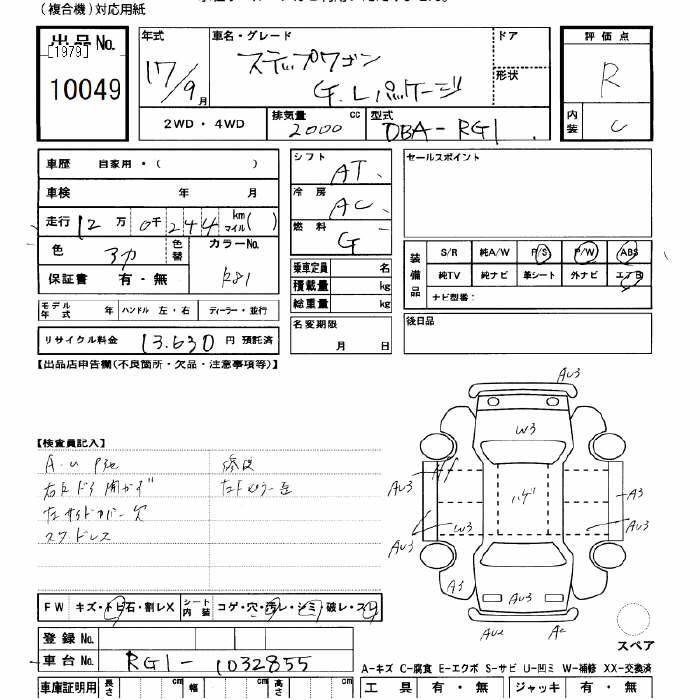 (複合機)対応用紙
出品No.
[1979]
10049
年式
17/9月
車名・グレード
ステップワゴン
G.Lパッケージ
ドア
形状
評価点
R
内装
C
2WD・4WD
排気量
cc
2000
型式
DBA-RG1
車歴 自家用・( )
車検 年 月
走行 12万 0千 244 km マイル ( )
色 アカ
色替
カラーNo.
R81
保証書 有・無
モデル年式 年 ハンドル 左・右 ディーラー・並行
リサイクル料金 13.630 円 預託済
シフト
AT
冷房
AC
燃料
G
乗車定員 名
積載量 kg
総重量 kg
名変期限
月 日
セールスポイント
装備品
S/R 純A/W P/S P/W ABS
純TV 純ナビ 革シート 外ナビ エアB
ナビ型番:
後日品
【出品店申告欄(不良箇所・欠品・注意事項等)】
【検査員記入】
A.u
右
左サイドカバー欠
スペアレス
AU3
W3
AU3
A3
W3
AU3
AU3
A3
AU3
スペア
FW キズ・トビ石・割レX
シート内装 コゲ・穴・汚レ・シミ・破レ・スレ
登録No.
車台No. RG1-1032855
A-キズ C-腐食 E-エクボ S-サビ U-凹ミ W-補修 XX-交換済
車庫証明用 長さ cm 幅 cm 高さ cm
工具 有・無 ジャッキ 有・無